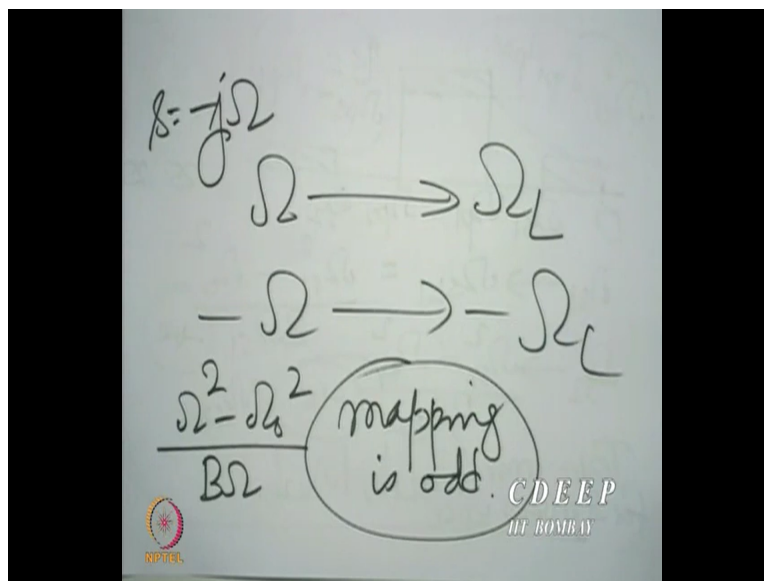 s = -jΩ
Ω → Ω_L
-Ω → -Ω_L
Ω² - Ω₀²
BΩ
mapping
is odd.
CDEEP
IIT BOMBAY
NPTEL